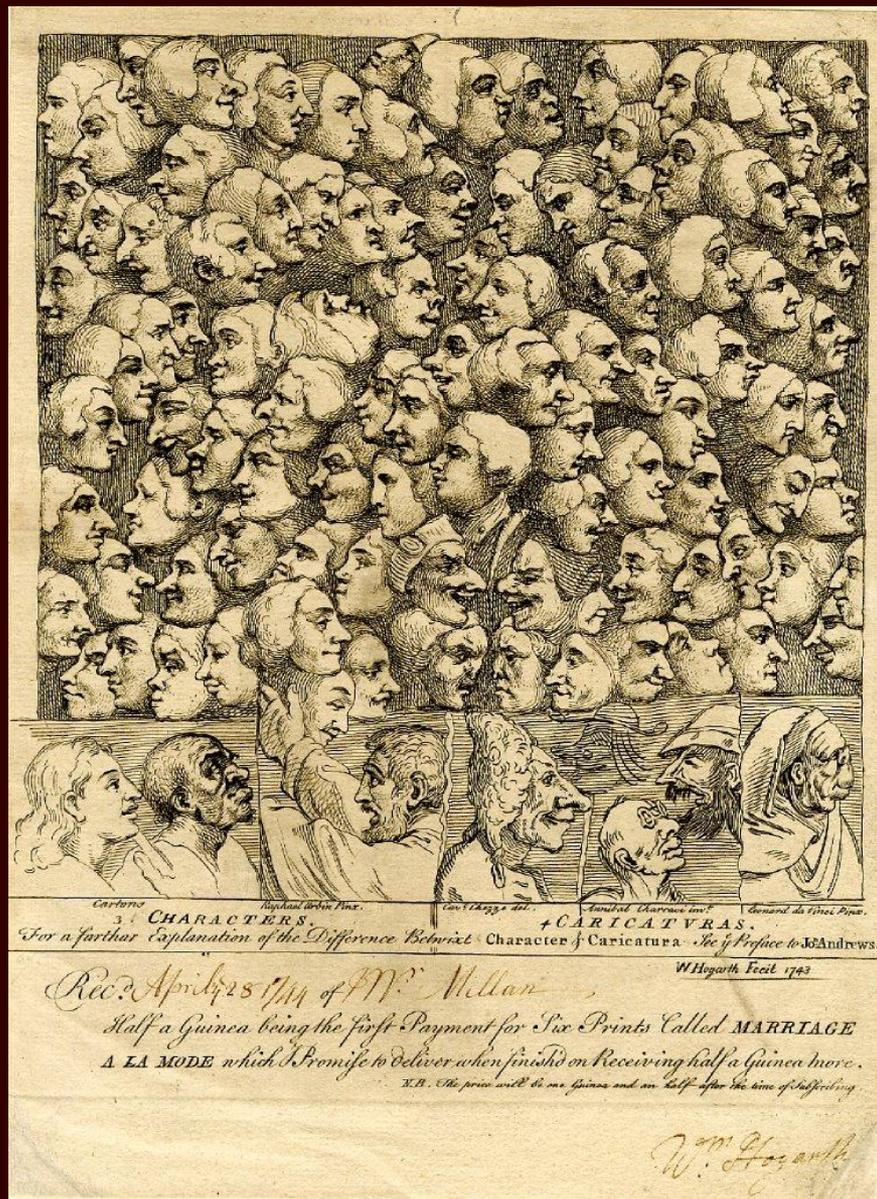 Cartons Raphael Urbin Pinx. Cavr. Chezze del. Annibal Charraci invt. Leonard da Vinci Pinx.
3 CHARACTERS. 4 CARICATVRAS.
For a farthar Explanation of the Difference Betwixt Character & Caricatura See ye Preface to Jos. Andrews
W Hogarth Fecit 1743
Recd. April 28 1744 of Mr. Millan
Half a Guinea being the first Payment for Six Prints Called MARRIAGE
A LA MODE which I Promise to deliver when finish'd on Receiving half a Guinea more.
N.B. The price will be one Guinea and an half after the time of Subscribing.
Wm. Hogarth